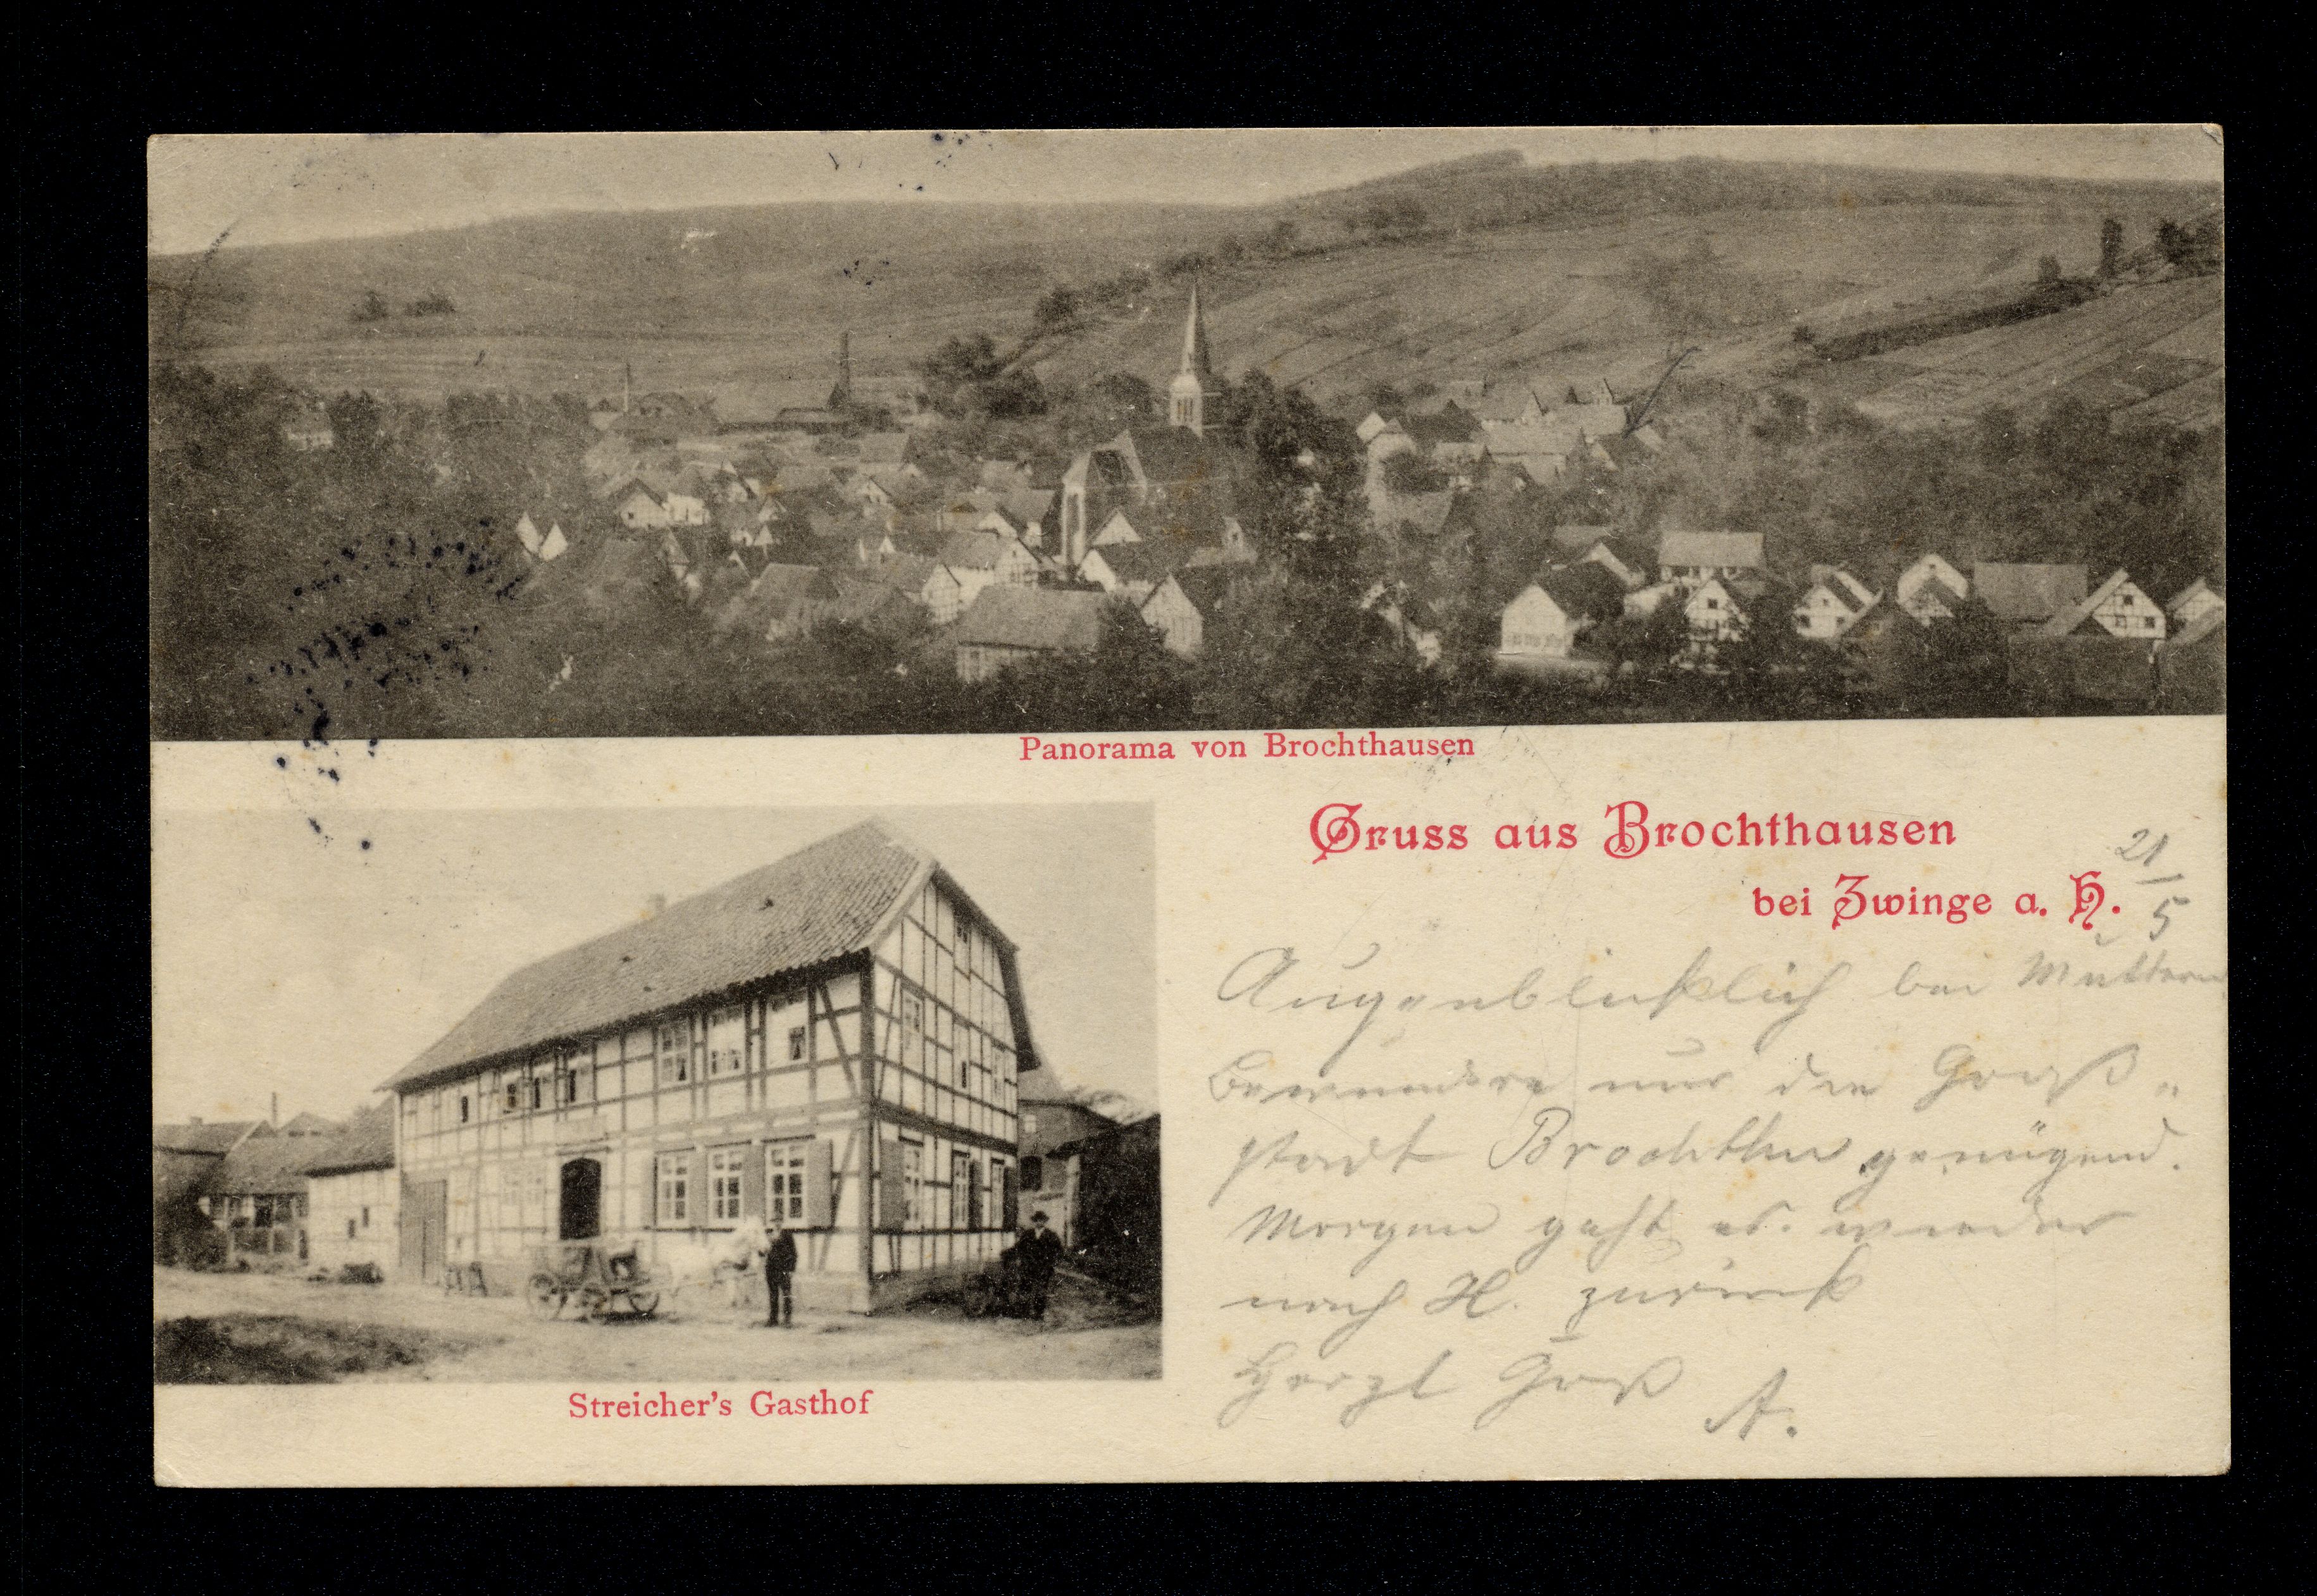 Panorama von Brochthausen
Gruss aus Brochthausen
bei Zwinge a. H.
21/5
Augenblicklich bei Muttern
Bewundere nur die Groß-
stadt Brochthn genügend.
Morgen geht es wieder
nach H. zurück
Herzl Gruß
A.
Streicher's Gasthof